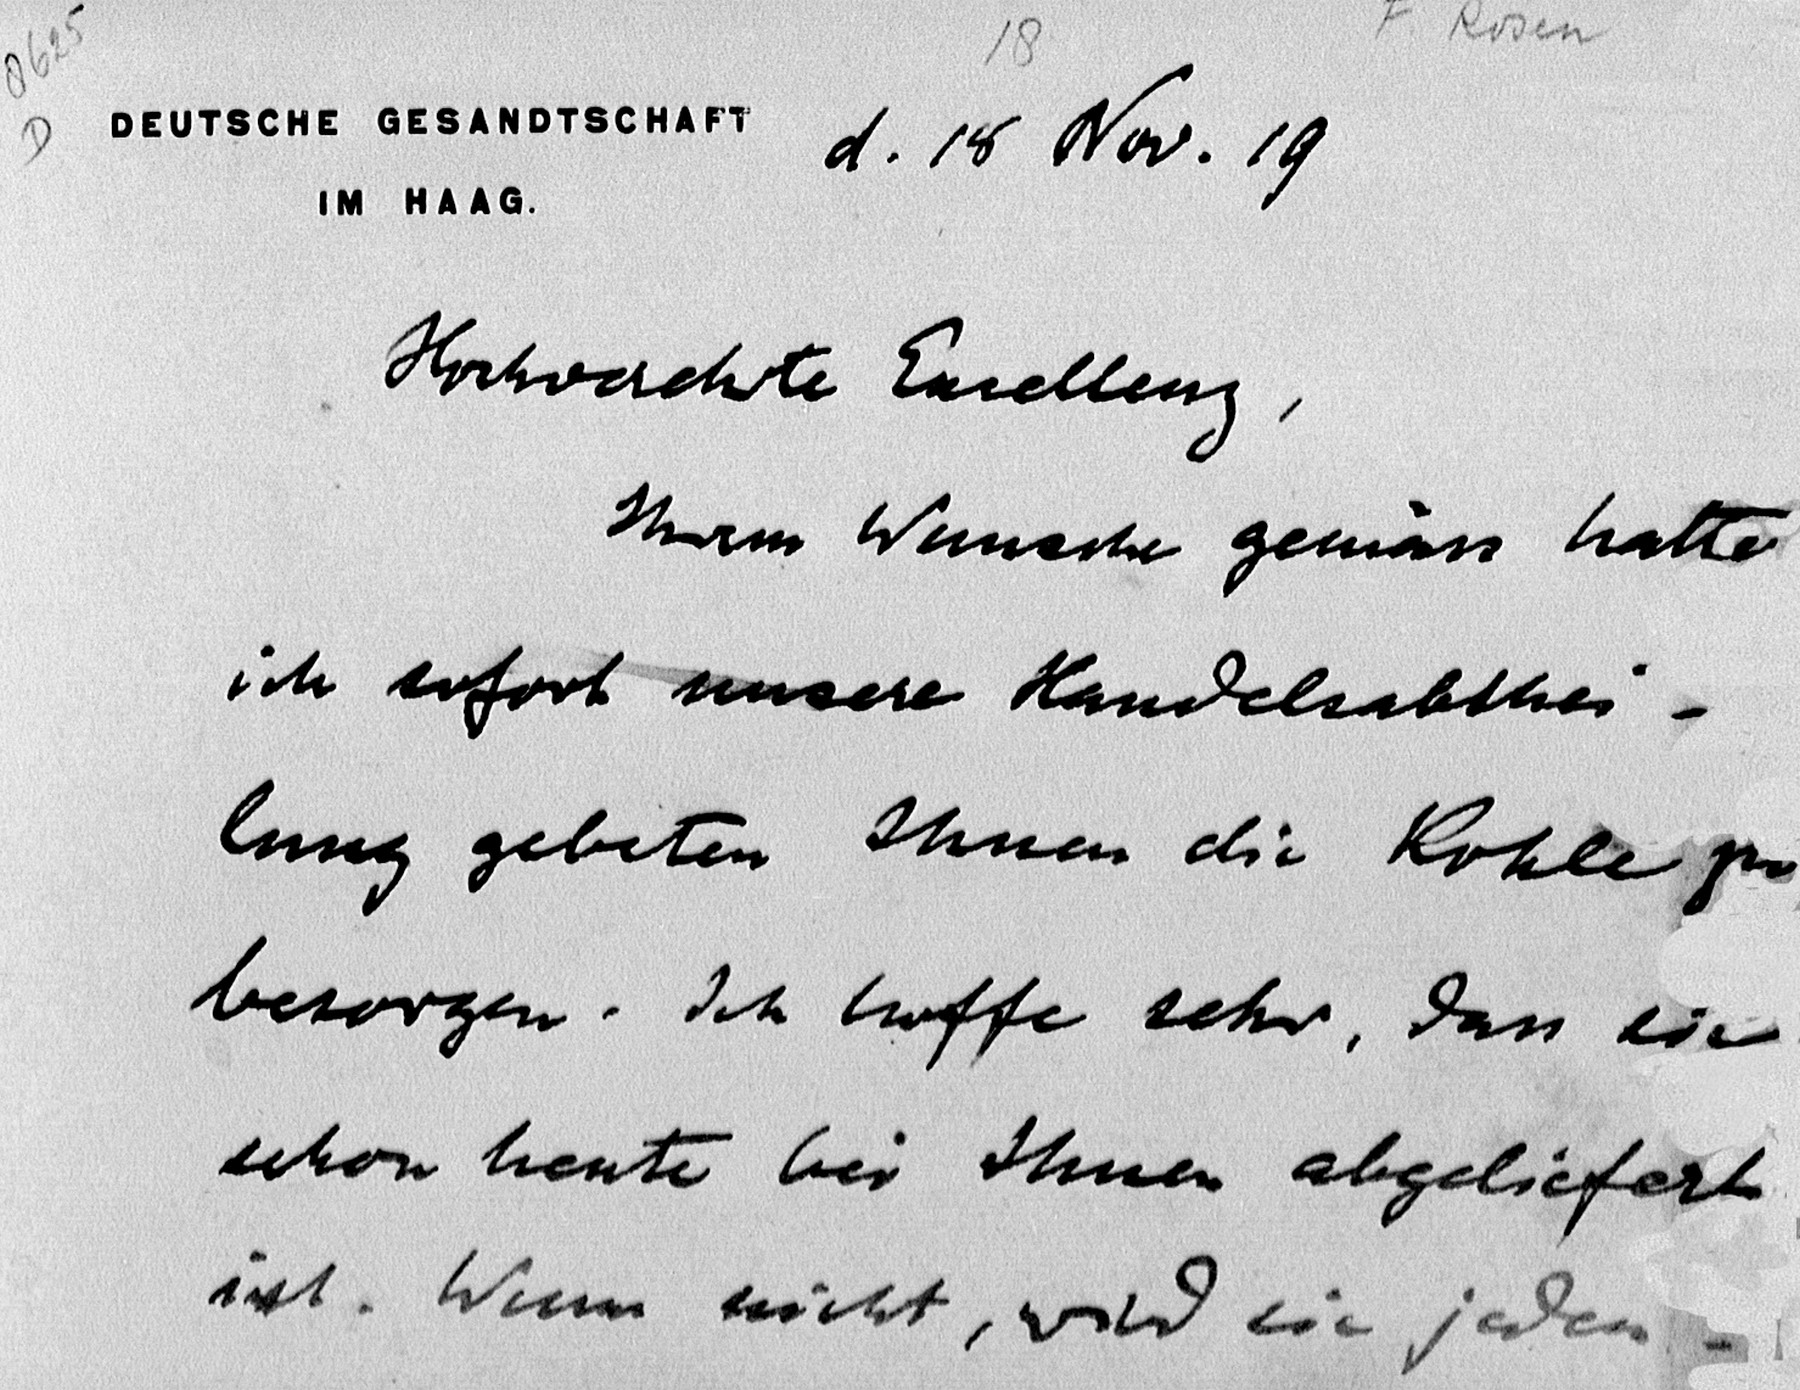 0625
D
18
F. Rosen
DEUTSCHE GESANDTSCHAFT
IM HAAG.
d. 18 Nov. 19
Hochverehrte Excellenz,
Ihrem Wunsche gemäss hatte
ich sofort unsere Handelsabthei-
lung gebeten Ihnen die Kohle zu
besorgen. Ich hoffe sehr, dass sie
schon heute bei Ihnen abgeliefert
ist. Wenn nicht, wird sie jeden-